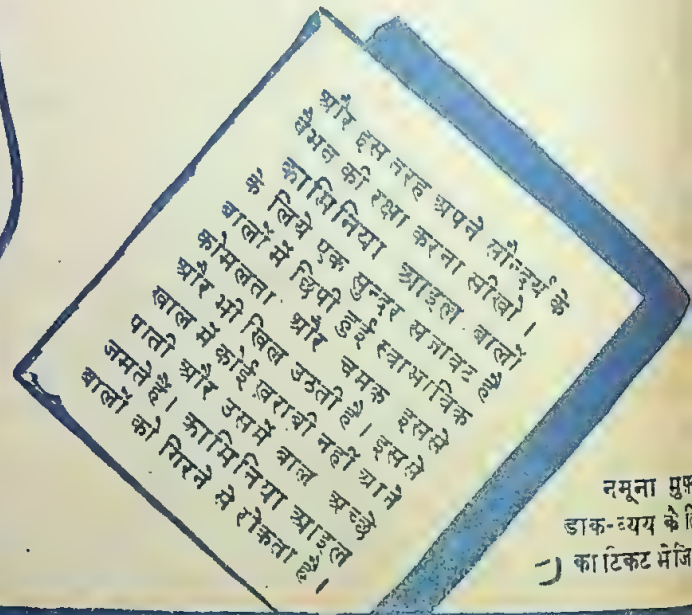 और इस तरह अपने सौन्दर्य के
वैभव की रक्षा करना सीखो ।
कामिनिया आइल बालों
के लिये एक सुन्दर सजावट है
बालों में छिपी हुई स्वाभाविक
कोमलता और चमक इससे
और भी खिल उठती है । इससे
खाल में कोई ख़राबी नहीं आने
पाती और उसमें बाल अच्छे
जमते हैं । कामिनिया आइल
बालों को गिरने से रोकता है ।
नमूना
डाक-व्यय के
का टिकट